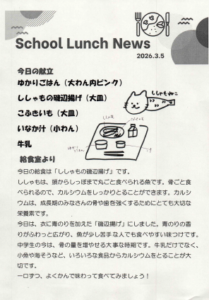 School Lunch News
2026.3.5
今日の献立
ゆかりごはん（大わん内ピンク）
ししゃもの磯辺揚げ（大皿）
こふきいも（大皿）
いなか汁（小わん）
牛乳
給食室より
今日の給食は「ししゃもの磯辺揚げ」です。
ししゃもは、頭からしっぽまで丸ごと食べられる魚です。骨ごと食
べられるので、カルシウムをしっかりとることができます。カルシ
ウムは、成長期のみなさんの骨や歯を強くするためにとても大切な
栄養素です。
今日は、衣に青のりを加えた「磯辺揚げ」にしました。青のりの香
りがふわっと広がり、魚が少し苦手な人でも食べやすい味つけです。
中学生の今は、骨の量を増やせる大事な時期です。牛乳だけでなく、
小魚や海そうなど、いろいろな食品からカルシウムをとることが大
切です。
一口ずつ、よくかんで味わって食べてみましょう！